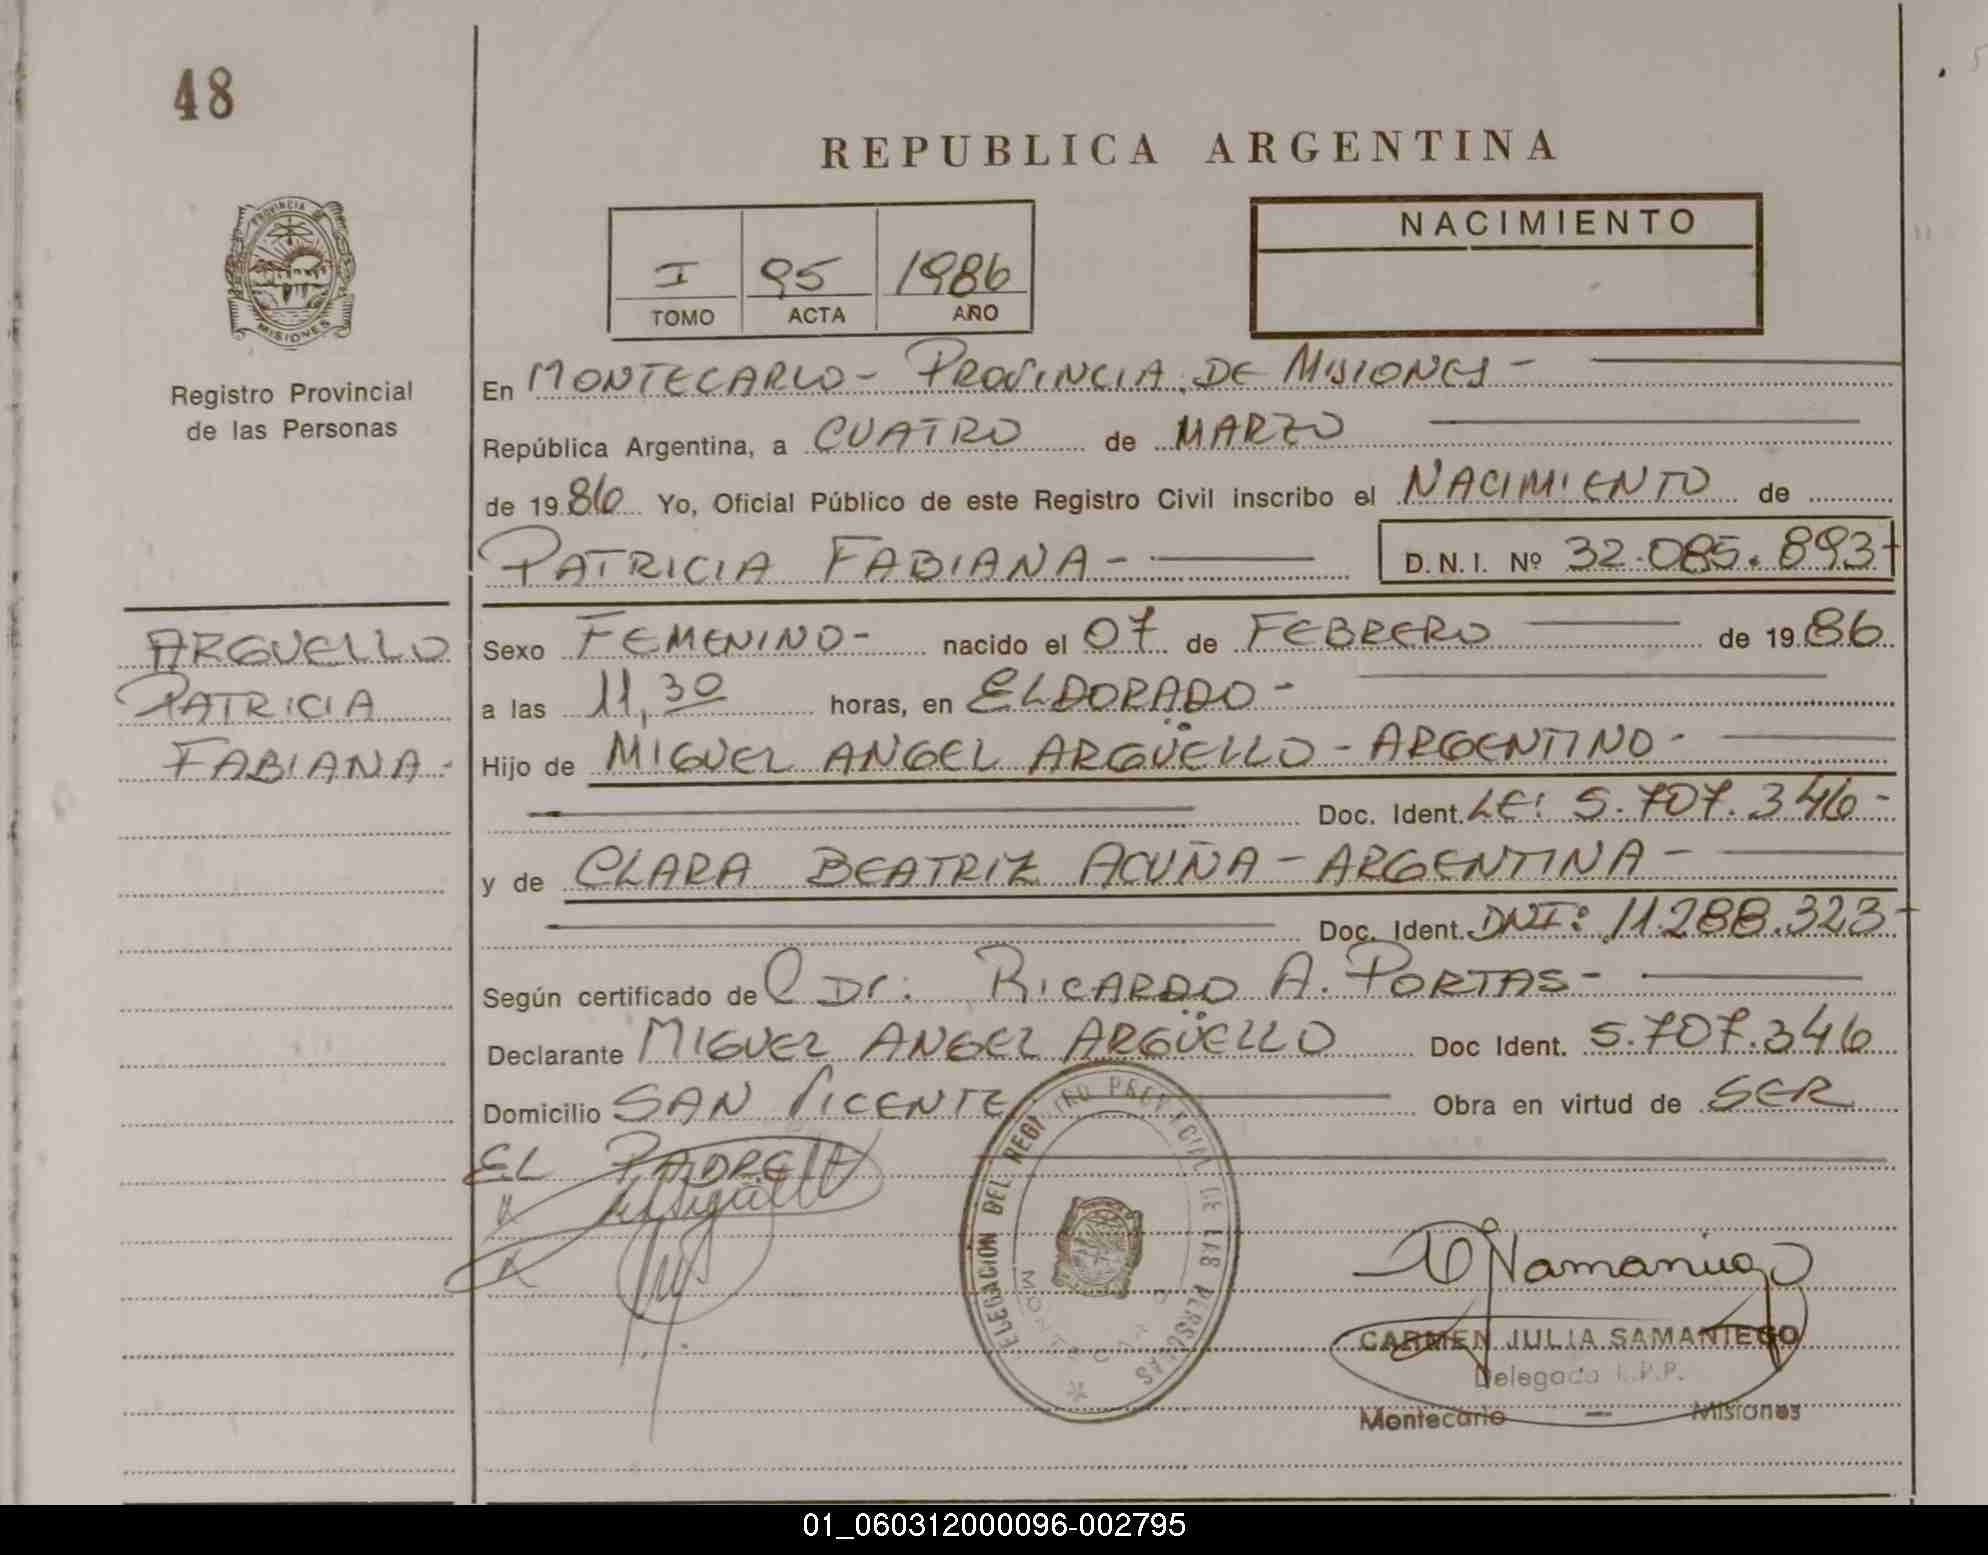 48
REPUBLICA ARGENTINA
PROVINCIA DE
MISIONES
Registro Provincial
de las Personas
I 95 1986
TOMO ACTA AÑO
NACIMIENTO
En MONTECARLO - PROVINCIA DE MISIONES -
República Argentina, a CUATRO de MARZO
de 1986 Yo, Oficial Público de este Registro Civil inscribo el NACIMIENTO de
PATRICIA FABIANA - D.N.I. Nº 32.085.893-
ARGUELLO
PATRICIA
FABIANA -
Sexo FEMENINO - nacido el 07 de FEBRERO de 1986
a las 11,30 horas, en ELDORADO -
Hijo de MIGUEL ANGEL ARGÜELLO - ARGENTINO -
Doc. Ident. LE: 5.707.346 -
y de CLARA BEATRIZ ACUÑA - ARGENTINA -
Doc. Ident. DNI: 11.288.323 -
Según certificado de Dr. RICARDO A. PORTAS -
Declarante MIGUEL ANGEL ARGÜELLO Doc Ident. 5.707.346
Domicilio SAN VICENTE Obra en virtud de SER
EL PADRE
DELEGACION DEL REGISTRO PROVINCIAL DE LAS PERSONAS
MONTECARLO
CARMEN JULIA SAMANIEGO
Delegada R.P.P.
Montecarlo - Misiones
01_060312000096-002795